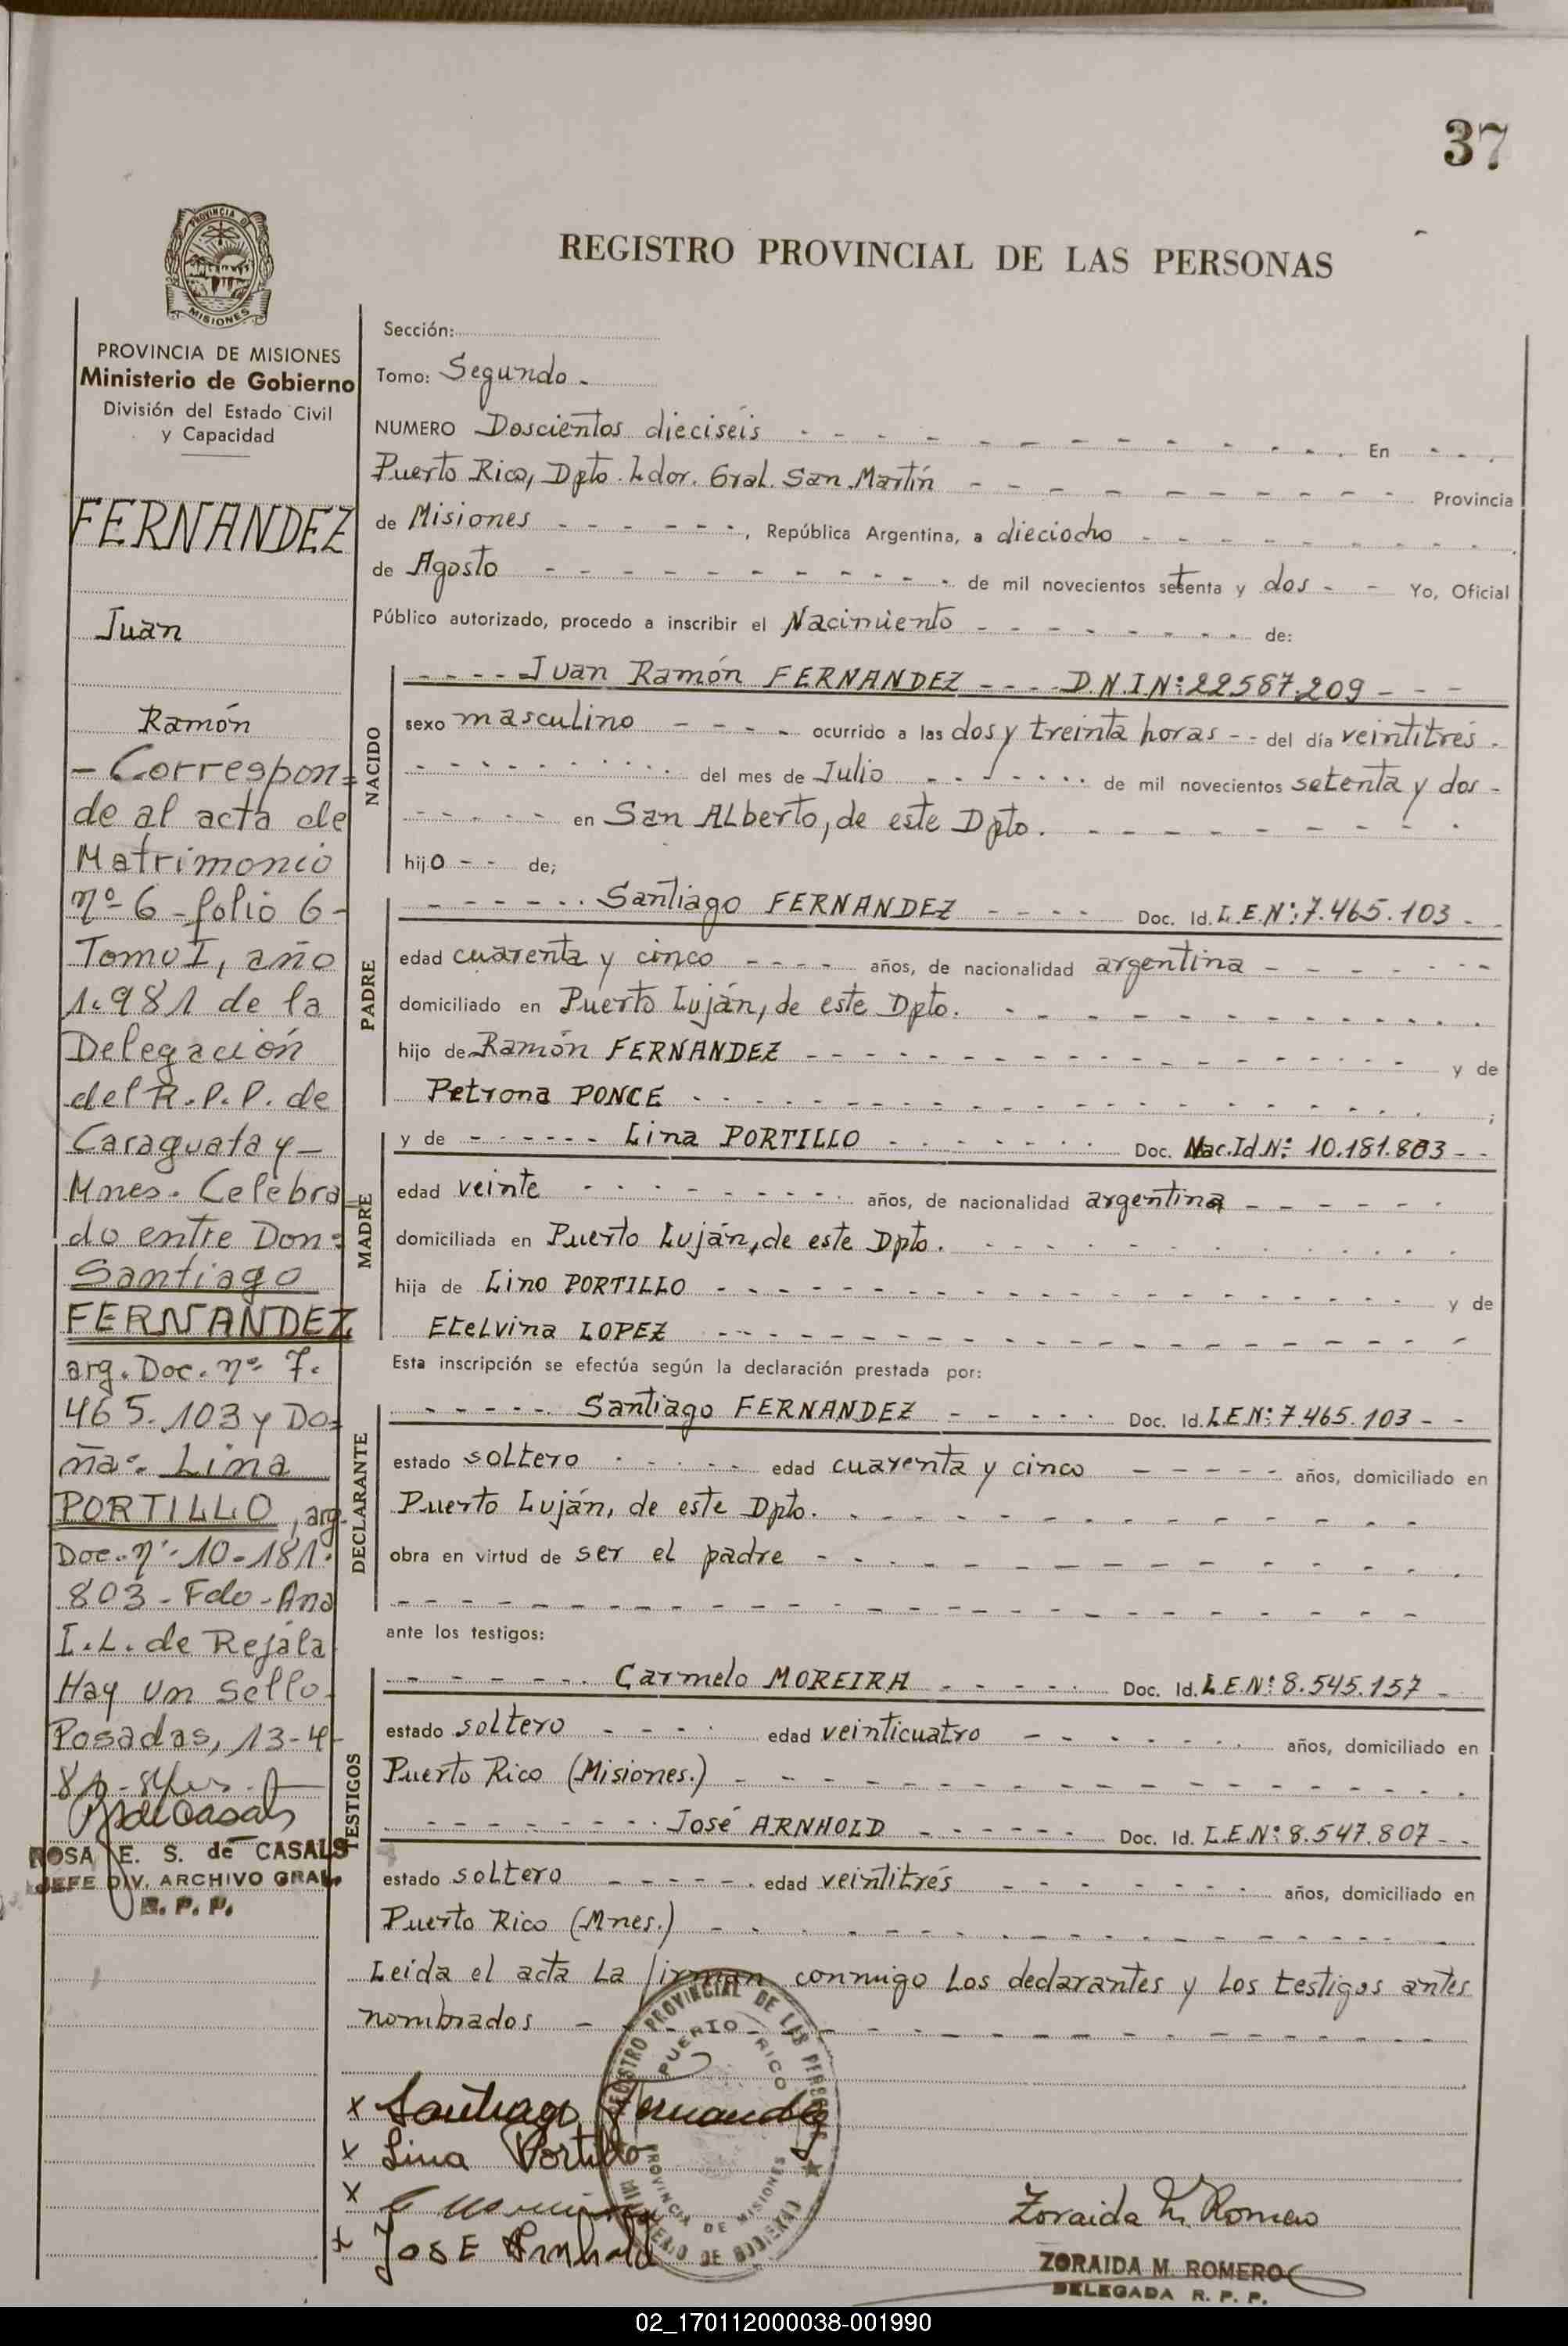 37
REGISTRO PROVINCIAL DE LAS PERSONAS
PROVINCIA DE MISIONES
Ministerio de Gobierno
División del Estado Civil
y Capacidad
FERNANDEZ
Juan
Ramón
- Correspon=
de al acta de
Matrimonio
nº 6 - folio 6 -
Tomo I, año
1.981 de la
Delegación
del R.P.P. de
Caraguatay -
Mnes. Celebra
do entre Don=
Santiago
FERNANDEZ
arg. Doc. nº 7.
465.103 y Do=
ña. Lina
PORTILLO, arg.
Doc. nº 10.181.
803 - Fdo - Ana
I.L. de Rejala
Hay un sello.
Posadas, 13-4-
ROSA E. S. de CASALS
JEFE DIV. ARCHIVO GRAL.
R. P. P.
Sección:
Tomo: Segundo.
NUMERO Doscientos dieciséis En
Puerto Rico, Dpto. Ldor. Gral. San Martín Provincia
de Misiones, República Argentina, a dieciocho
de Agosto de mil novecientos setenta y dos Yo, Oficial
Público autorizado, procedo a inscribir el Nacimiento de:
NACIDO
Juan Ramón FERNANDEZ D.N.I.Nº: 22587.209
sexo masculino ocurrido a las dos y treinta horas del día veintitrés
del mes de Julio de mil novecientos setenta y dos
en San Alberto, de este Dpto.
hijo de;
PADRE
Santiago FERNANDEZ Doc. Id. L.E.Nº: 7.465.103
edad cuarenta y cinco años, de nacionalidad argentina
domiciliado en Puerto Luján, de este Dpto.
hijo de Ramón FERNANDEZ y de
Petrona PONCE ;
MADRE
y de Lina PORTILLO Doc. Nac.Id.Nº: 10.181.803
edad veinte años, de nacionalidad argentina
domiciliada en Puerto Luján, de este Dpto.
hija de Lino PORTILLO y de
Etelvina LOPEZ
Esta inscripción se efectúa según la declaración prestada por:
DECLARANTE
Santiago FERNANDEZ Doc. Id. L.E.Nº: 7.465.103
estado soltero edad cuarenta y cinco años, domiciliado en
Puerto Luján, de este Dpto.
obra en virtud de ser el padre
ante los testigos:
TESTIGOS
Carmelo MOREIRA Doc. Id. L.E.Nº: 8.545.157
estado soltero edad veinticuatro años, domiciliado en
Puerto Rico (Misiones.)
José ARNHOLD Doc. Id. L.E.Nº: 8.547.807
estado soltero edad veintitrés años, domiciliado en
Puerto Rico (Mnes.)
Leida el acta la firman conmigo los declarantes y los testigos antes
nombrados
REGISTRO PROVINCIAL DE LAS PERSONAS
PUERTO RICO
PROVINCIA DE MISIONES
MINISTERIO DE GOBIERNO
x Santiago Fernandez
x Lina Portillo
x
x JOSE Arnhold
Zoraida M. Romero
ZORAIDA M. ROMERO
DELEGADA R. P. P.
02_170112000038-001990